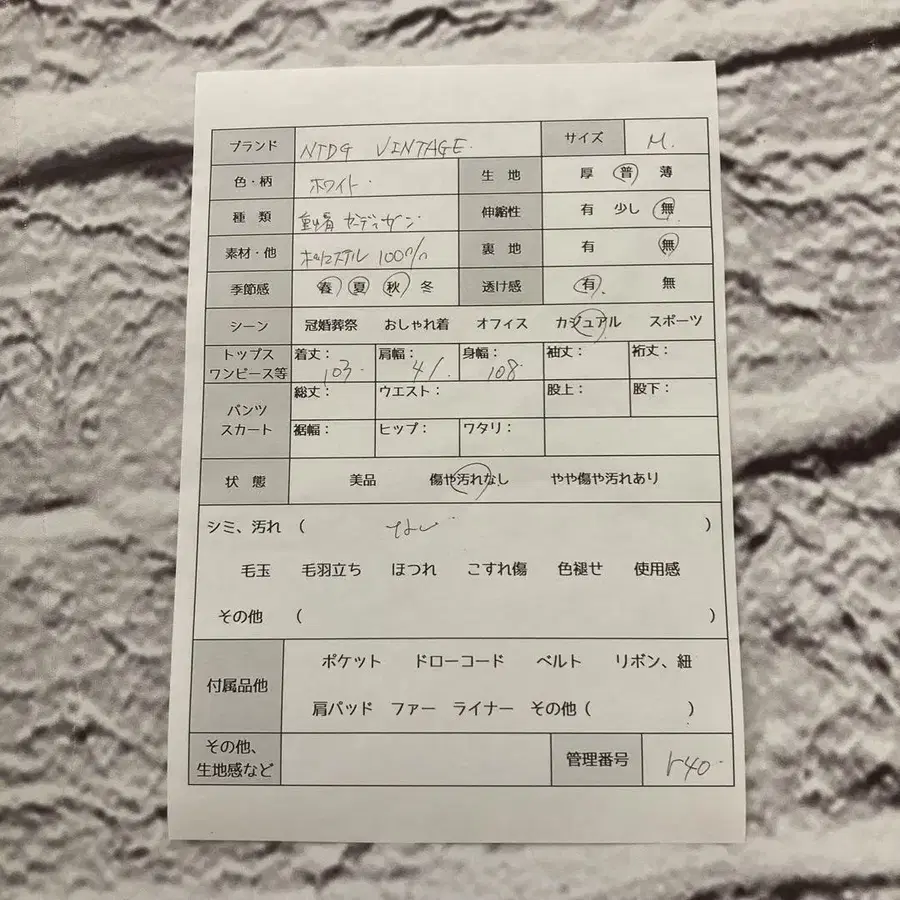 ブランド NTDG VINTAGE. サイズ M.
色・柄 ホワイト. 生地 厚 普 薄
種類 カーディガン 伸縮性 有 少し 無
素材・他 ポリエステル 100% 裏地 有 無
季節感 春 夏 秋 冬 透け感 有 無
シーン 冠婚葬祭 おしゃれ着 オフィス カジュアル スポーツ
トップス ワンピース等 着丈： 103 肩幅： 41. 身幅： 108 袖丈： 裄丈：
パンツ スカート 総丈： ウエスト： 股上： 股下：
裾幅： ヒップ： ワタリ：
状態 美品 傷や汚れなし やや傷や汚れあり
シミ、汚れ ( なし )
毛玉 毛羽立ち ほつれ こすれ傷 色褪せ 使用感
その他 ( )
付属品他 ポケット ドローコード ベルト リボン、紐
肩パッド ファー ライナー その他 ( )
その他、
生地感など 管理番号 r40